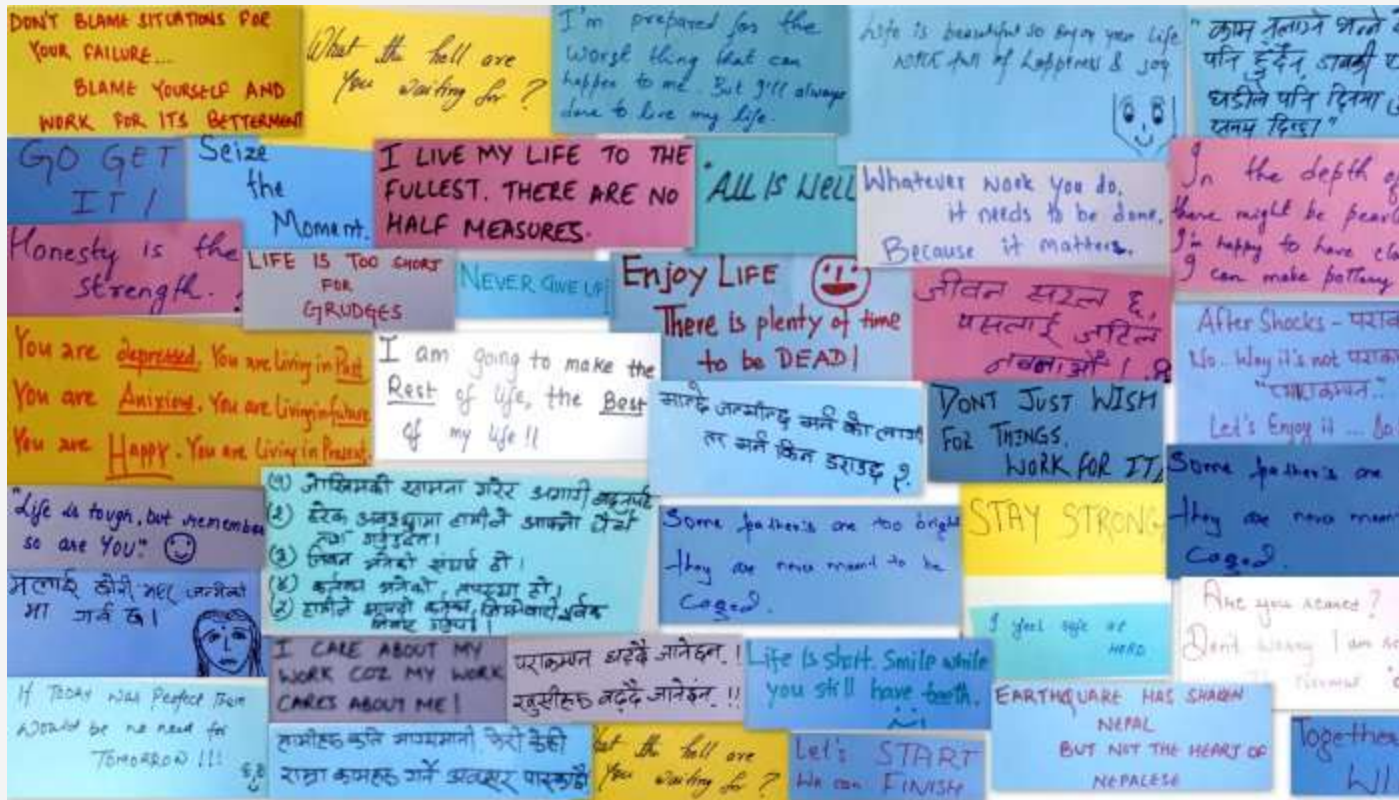 DON'T BLAME SITUATIONS FOR
YOUR FAILURE...
BLAME YOURSELF AND
WORK FOR ITS BETTERMENT
What the hell are
you waiting for?
I'm prepared for the
worst thing that can
happen to me. But I'll always
dare to live my life.
Life is beautiful so enjoy your life
full of happiness & joy
"काम नलाग्ने भन्ने
पनि हुँदैन
घडीले पनि दिनमा
समय दिन्छ"
GO GET
IT!
Seize
the
Moment.
I LIVE MY LIFE TO THE
FULLEST. THERE ARE NO
HALF MEASURES.
"ALL IS WELL
Whatever work you do,
it needs to be done.
Because it matters.
In the depth of
there might be pear
I'm happy to have cla
I can make pottery
Honesty is the
strength.
LIFE IS TOO SHORT
FOR
GRUDGES
NEVER GIVE UP
Enjoy LIFE
There is plenty of time
to be DEAD!
जीवन सरल छ,
यसलाई जटिल
नबनाऔं ।
After Shocks - पराक
No. Way it's not पराक
Let's Enjoy it ...
You are depressed, You are Living in Past
You are Anixious, You are Living in future
You are Happy. You are Living in Present.
I am going to make the
Rest of life, the Best
of my life !!
मान्छे जन्मीन्छ मर्न को लागी
तर मर्न किन डराउछ ?
DONT JUST WISH
FOR THINGS.
WORK FOR IT!
"Life is tough, but remember
so are YOU."
(१) जोखिमको सामना गरेर अगाडी बढ्नुपर्छ
(२) हरेक अवस्थामा हामीले आफ्नो धैर्य
(३) जिवन भनेको संघर्ष हो ।
(४) कर्तव्य भनेको तपस्या हो ।
Some father's are too bright
they are neva meant to be
Caged.
STAY STRONG
Some father's are
they are neva meant
Caged.
मलाई छोरी भएर जन्मेको
मा गर्व छ ।
I feel safe at
HERD
Are you scared?
Don't worry I am
I CARE ABOUT MY
WORK COZ MY WORK
CARES ABOUT ME!
पराकम्पन घट्दै जानेछन् !
खुसीहरु बढ्दै जानेछन् !!
Life is short. Smile while
you still have teeth.
If TODAY was Perfect Then
Would be no need for
TOMORROW !!!
हामीहरु कति भाग्यमानी फेरी केही
राम्रा कामहरु गर्ने अवसर
What the hell are
you waiting for?
Let's START
We can FINISH
EARTHQUAKE HAS SHAKEN
NEPAL
BUT NOT THE HEART OF
NEPALESE
Together